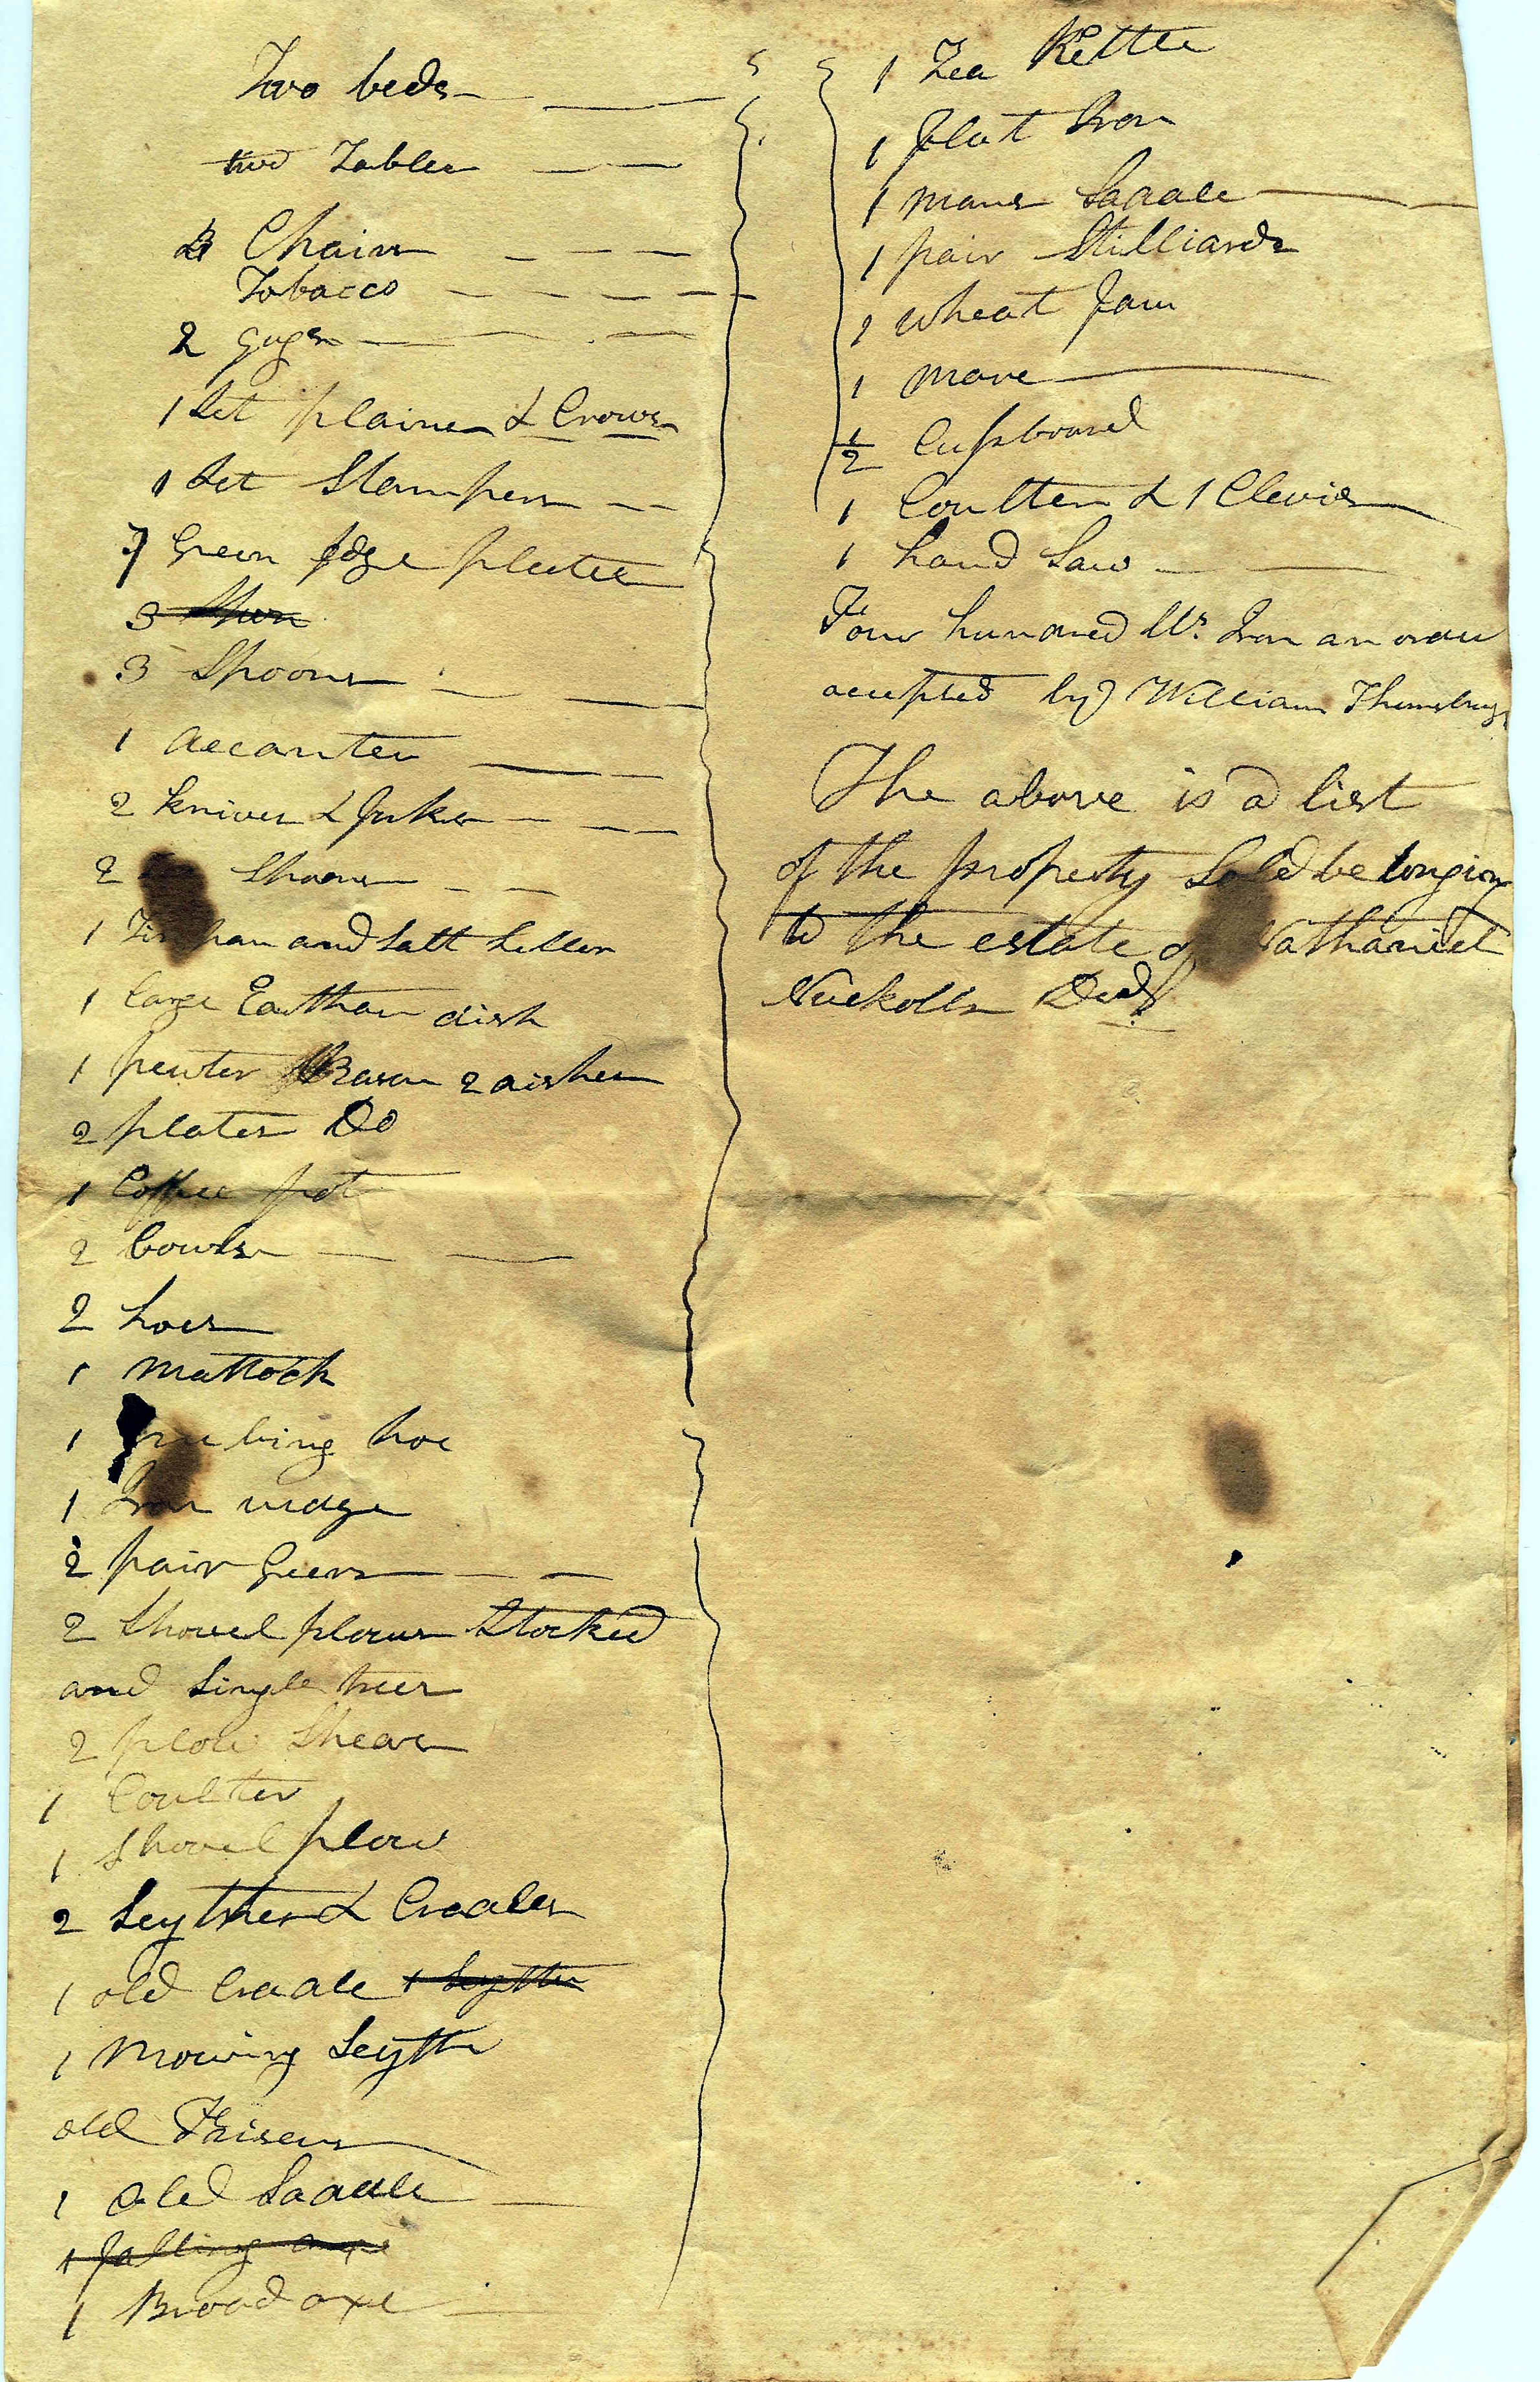 Two beds
two Tables
3 Chairs
Tobacco
2 Gugs
1 Set plaines & Crows
1 Set Stampers
7 Green Edge plates
3
3 Spoons
1 decanter
2 knives & forks
2 Spoons
1 Tin pan and Salt Seller
1 large Earthan dish
1 peuter Bason 2 dishes
2 plates Do
1 Coffee pot
2 bowls
2 hoes
1 mattock
1 bing hoe
1 Iron wedge
2 pair Geers
2 Shovel plows Stocked
and Single trees
2 plow Shears
1 Coulter
1 Shovel plow
2 Scythes & Cradles
1 old Cradle 1 Scythe
1 Mowing Scythe
old
1 old Saddle
1 falling axe
1 Broad axe
1 Tea Kettle
1 flat Iron
1 mans Saddle
1 pair Stilliards
1 wheat fan
1 mare
1/2 Cupboard
1 Coulter & 1 Clevis
1 hand Saw
Four hundred Ws. Iron an order
accepted by William
The above is a list
of the property Sold belonging
to the estate of Nathaniel
Nuckolls Decd